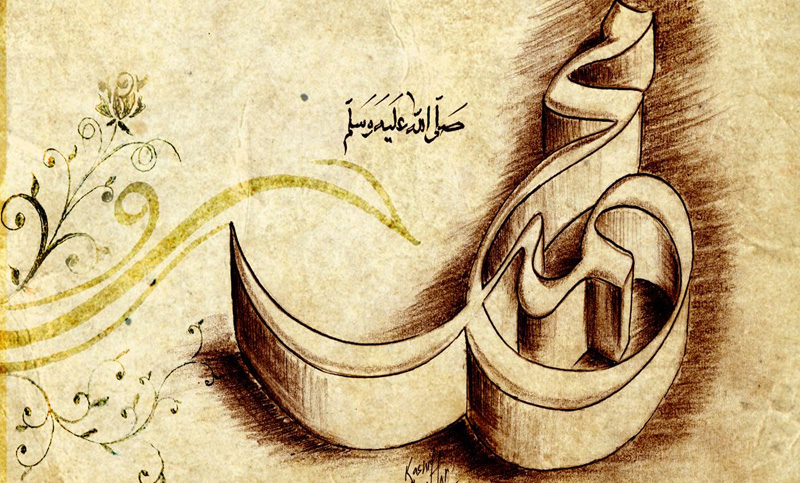 صَلَّى اللهُ عَلَيْهِ وَسَلَّمَ
محمد